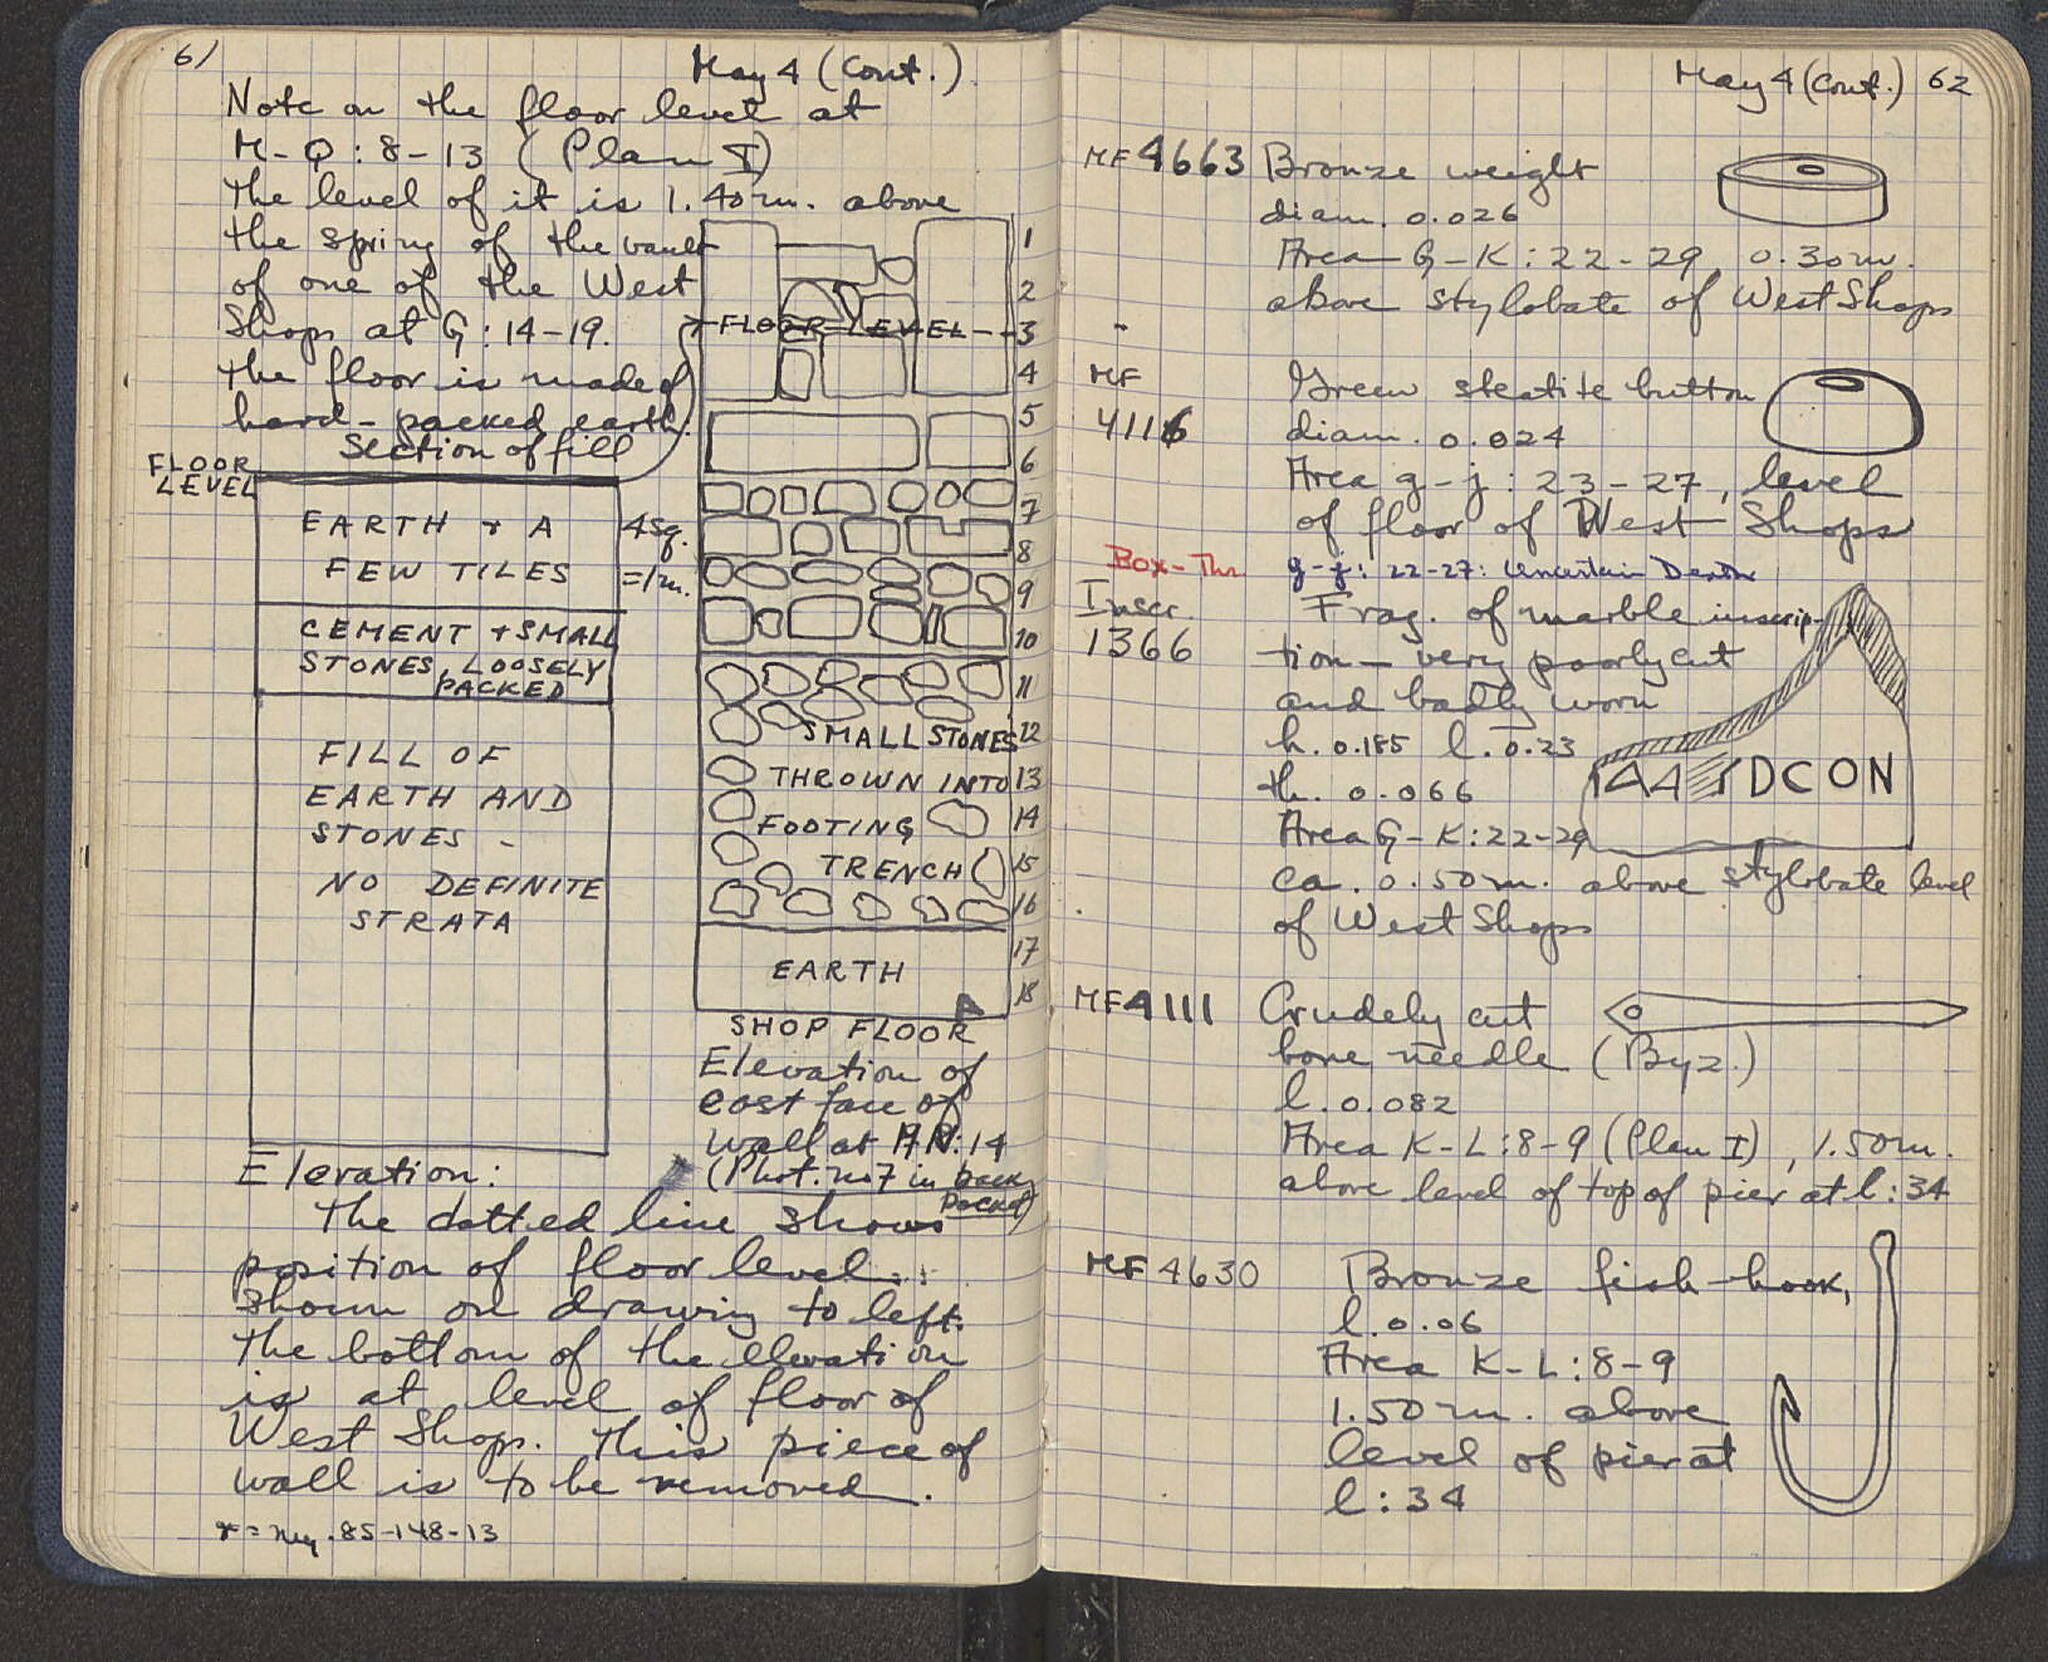 61
May 4 (Cont.)
Note on the floor level at
M-Q:8-13 (Plan I)
The level of it is 1.40m. above
the spring of the vault
of one of the West
Shops at G:14-19.
The floor is made of
hard-packed earth.
Section of fill
FLOOR
LEVEL
EARTH + A
FEW TILES
4 sq.
=1m.
CEMENT + SMALL
STONES, LOOSELY
PACKED
FILL OF
EARTH AND
STONES -
NO DEFINITE
STRATA
FLOOR LEVEL
1
2
3
4
5
6
7
8
9
10
11
12
13
14
15
16
17
18
SMALL STONES
THROWN INTO
FOOTING
TRENCH
EARTH
SHOP FLOOR
Elevation of
east face of
wall at N:14
(Phot. no 7 in back
pocket)
Elevation:
The dotted line shows
position of floor level
shown on drawing to left.
The bottom of the elevation
is at level of floor of
West Shops. This piece of
wall is to be removed.
* = neg. 85-148-13
May 4 (Cont.) 62
MF 4663 Bronze weight
diam. 0.026
Area G-K:22-29, 0.30m.
above stylobate of West Shops
MF
4116
Green steatite button
diam. 0.024
Area g-j:23-27, level
of floor of West Shops
g-j: 22-27: Uncertain Depth
Box-Thr
Inscr.
1366
Frag. of marble inscrip-
tion - very poorly cut
and badly worn
h. 0.185 l. 0.23
th. 0.066
Area G-K:22-29
ca. 0.50m. above stylobate level
of West Shops
DCON
MF 4111 Crudely cut
bone needle (Byz.)
l. 0.082
Area K-L:8-9 (Plan I), 1.50m.
above level of top of pier at l:34
MF 4630 Bronze fish-hook,
l. 0.06
Area K-L:8-9
1.50m. above
level of pier at
l:34